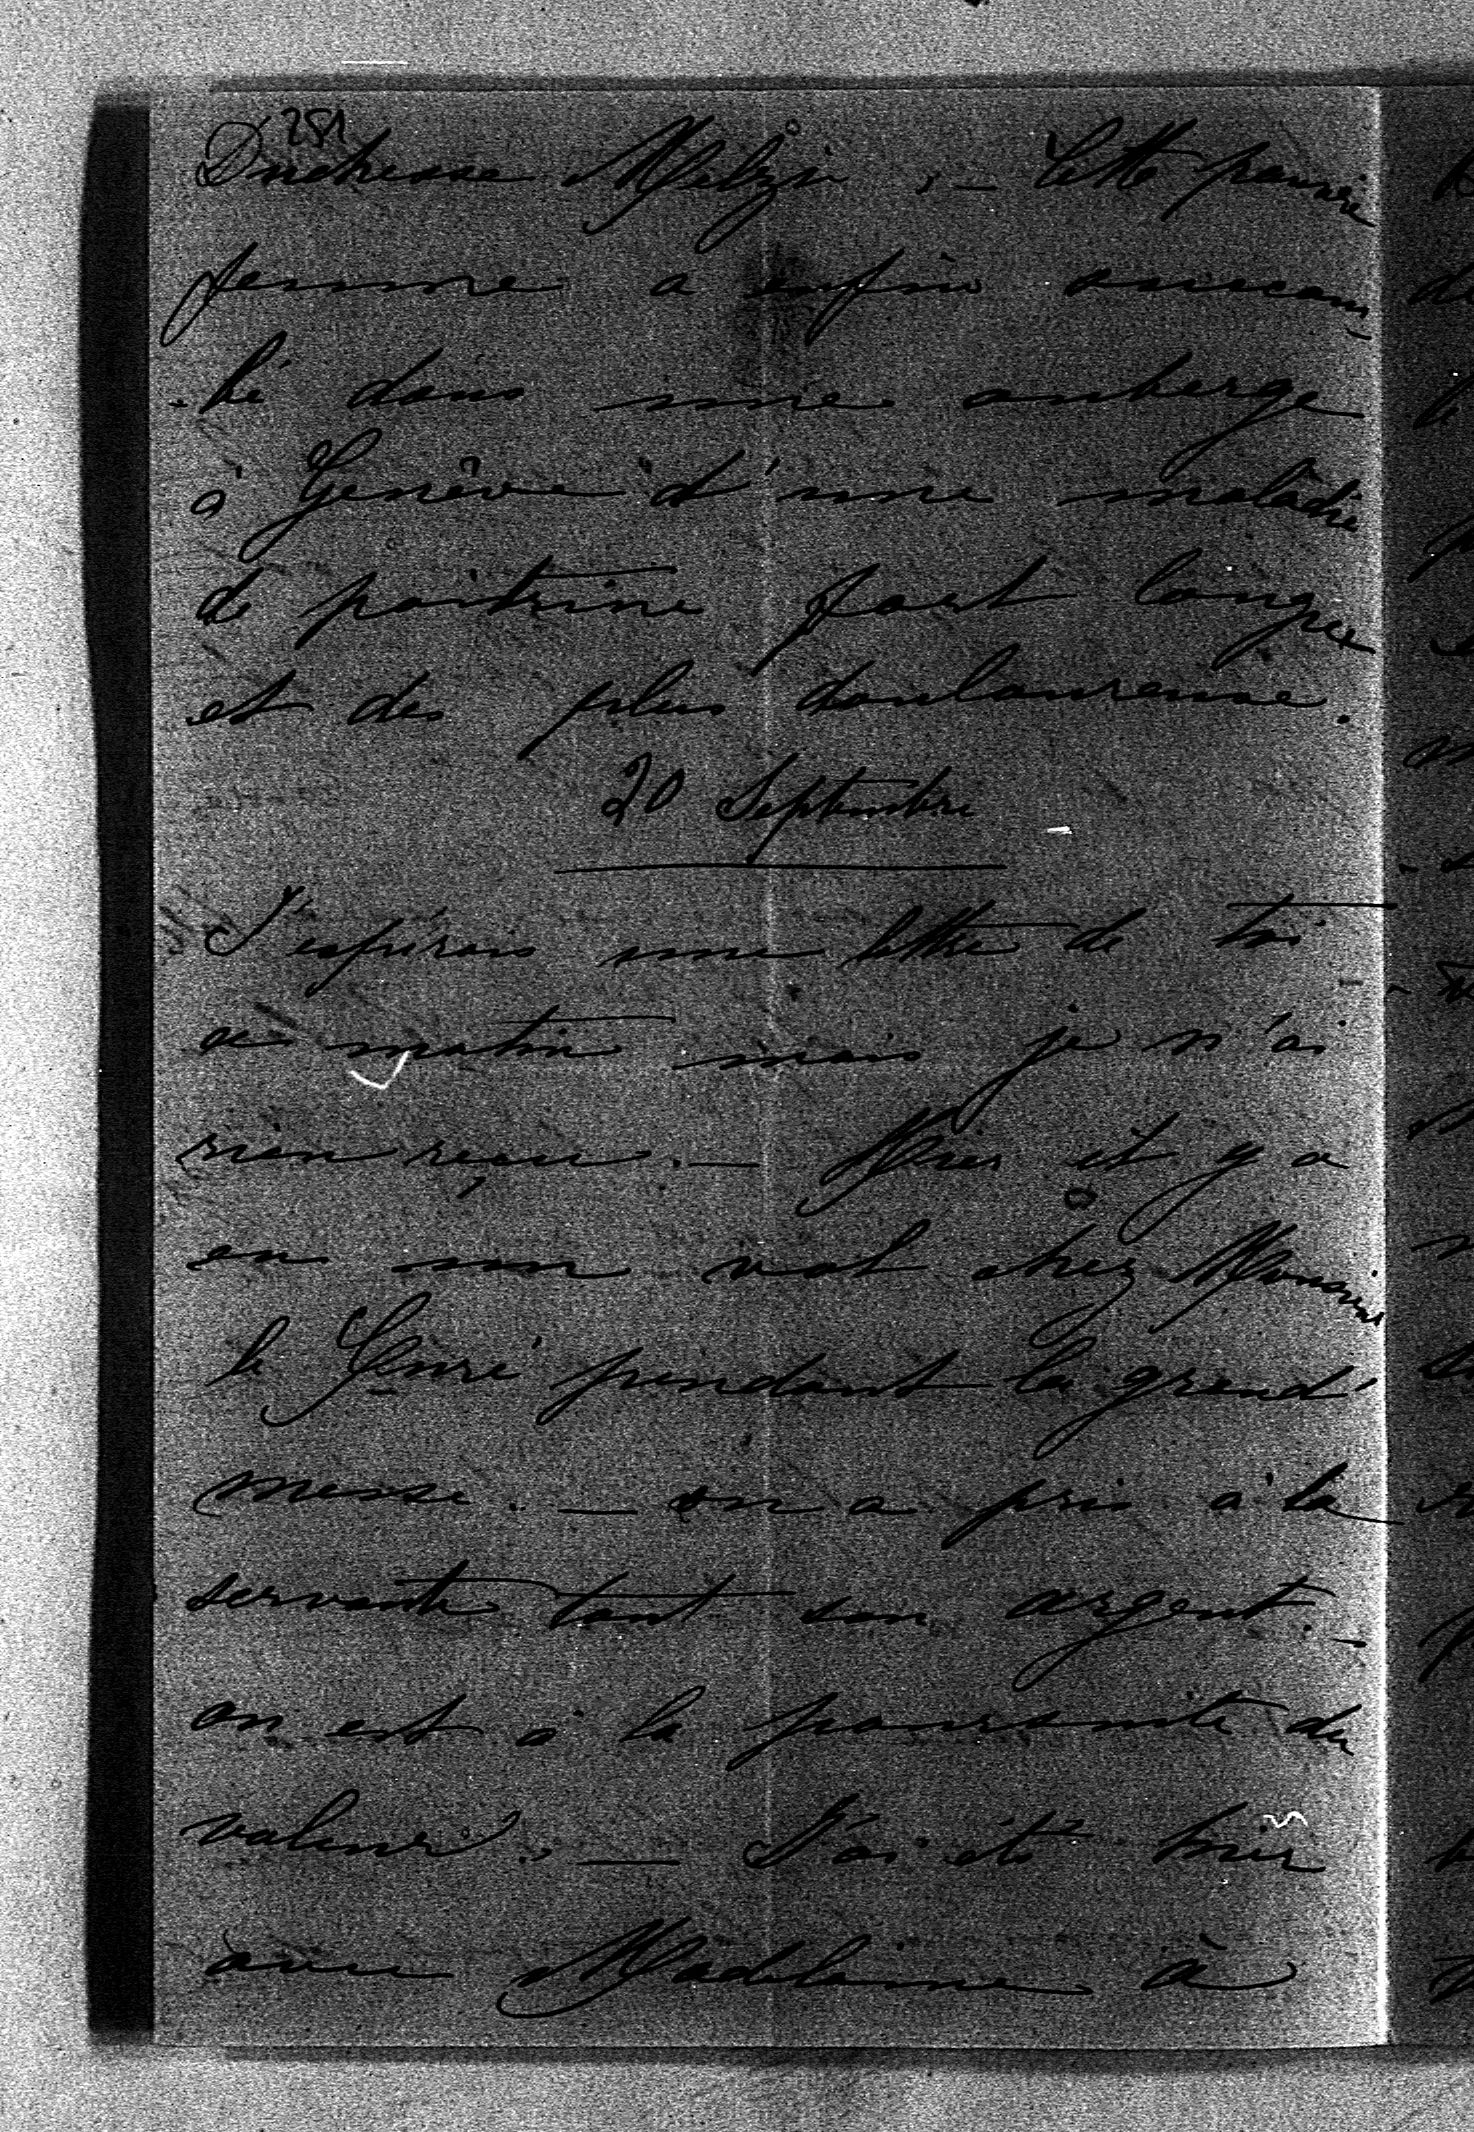 251
Duchesse Melzi. — Cette pauvre
femme a enfin succom
-bé dans une auberge
à Genève d'une maladie
de poitrine fort longue
et des plus douloureuse.
20 Septembre
J'espérais une lettre de toi
ce matin mais je n'ai
rien reçu. — Hier il y a
eu un vol chez Monsieur
le Curé pendant la grand'
messe. — on a pris à la
servante tout son argent. —
on est à la poursuite du
voleur. — J'ai été hier
avec Madeleine à